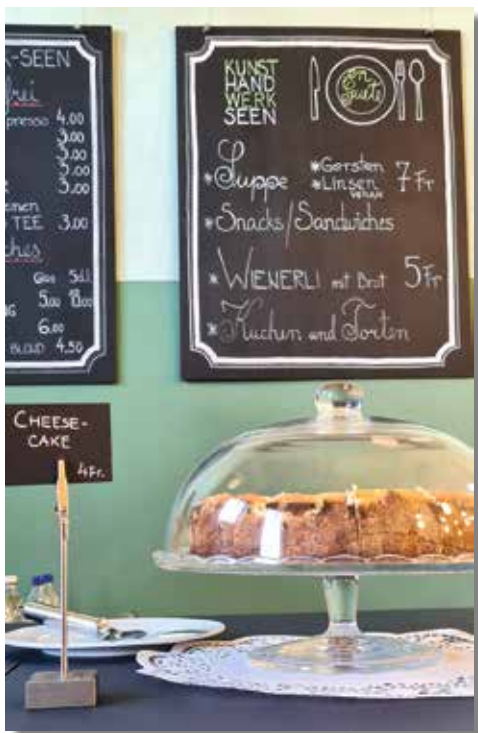 K-SEEN
frei
presso 4.00
3.00
3.00
3.00
3.00
TEE 3.00
ches
Glas
5.00
6.00
BLOND 4.50
KUNST
HAND
WERK
SEEN
en
Guete
*Suppe *Gersten 7 Fr
*Linsen
VEGAN
*Snacks/Sandwiches
*WIENERLI mit Brot 5 Fr
*Kuchen und Torten
CHEESE-
CAKE
4 Fr.